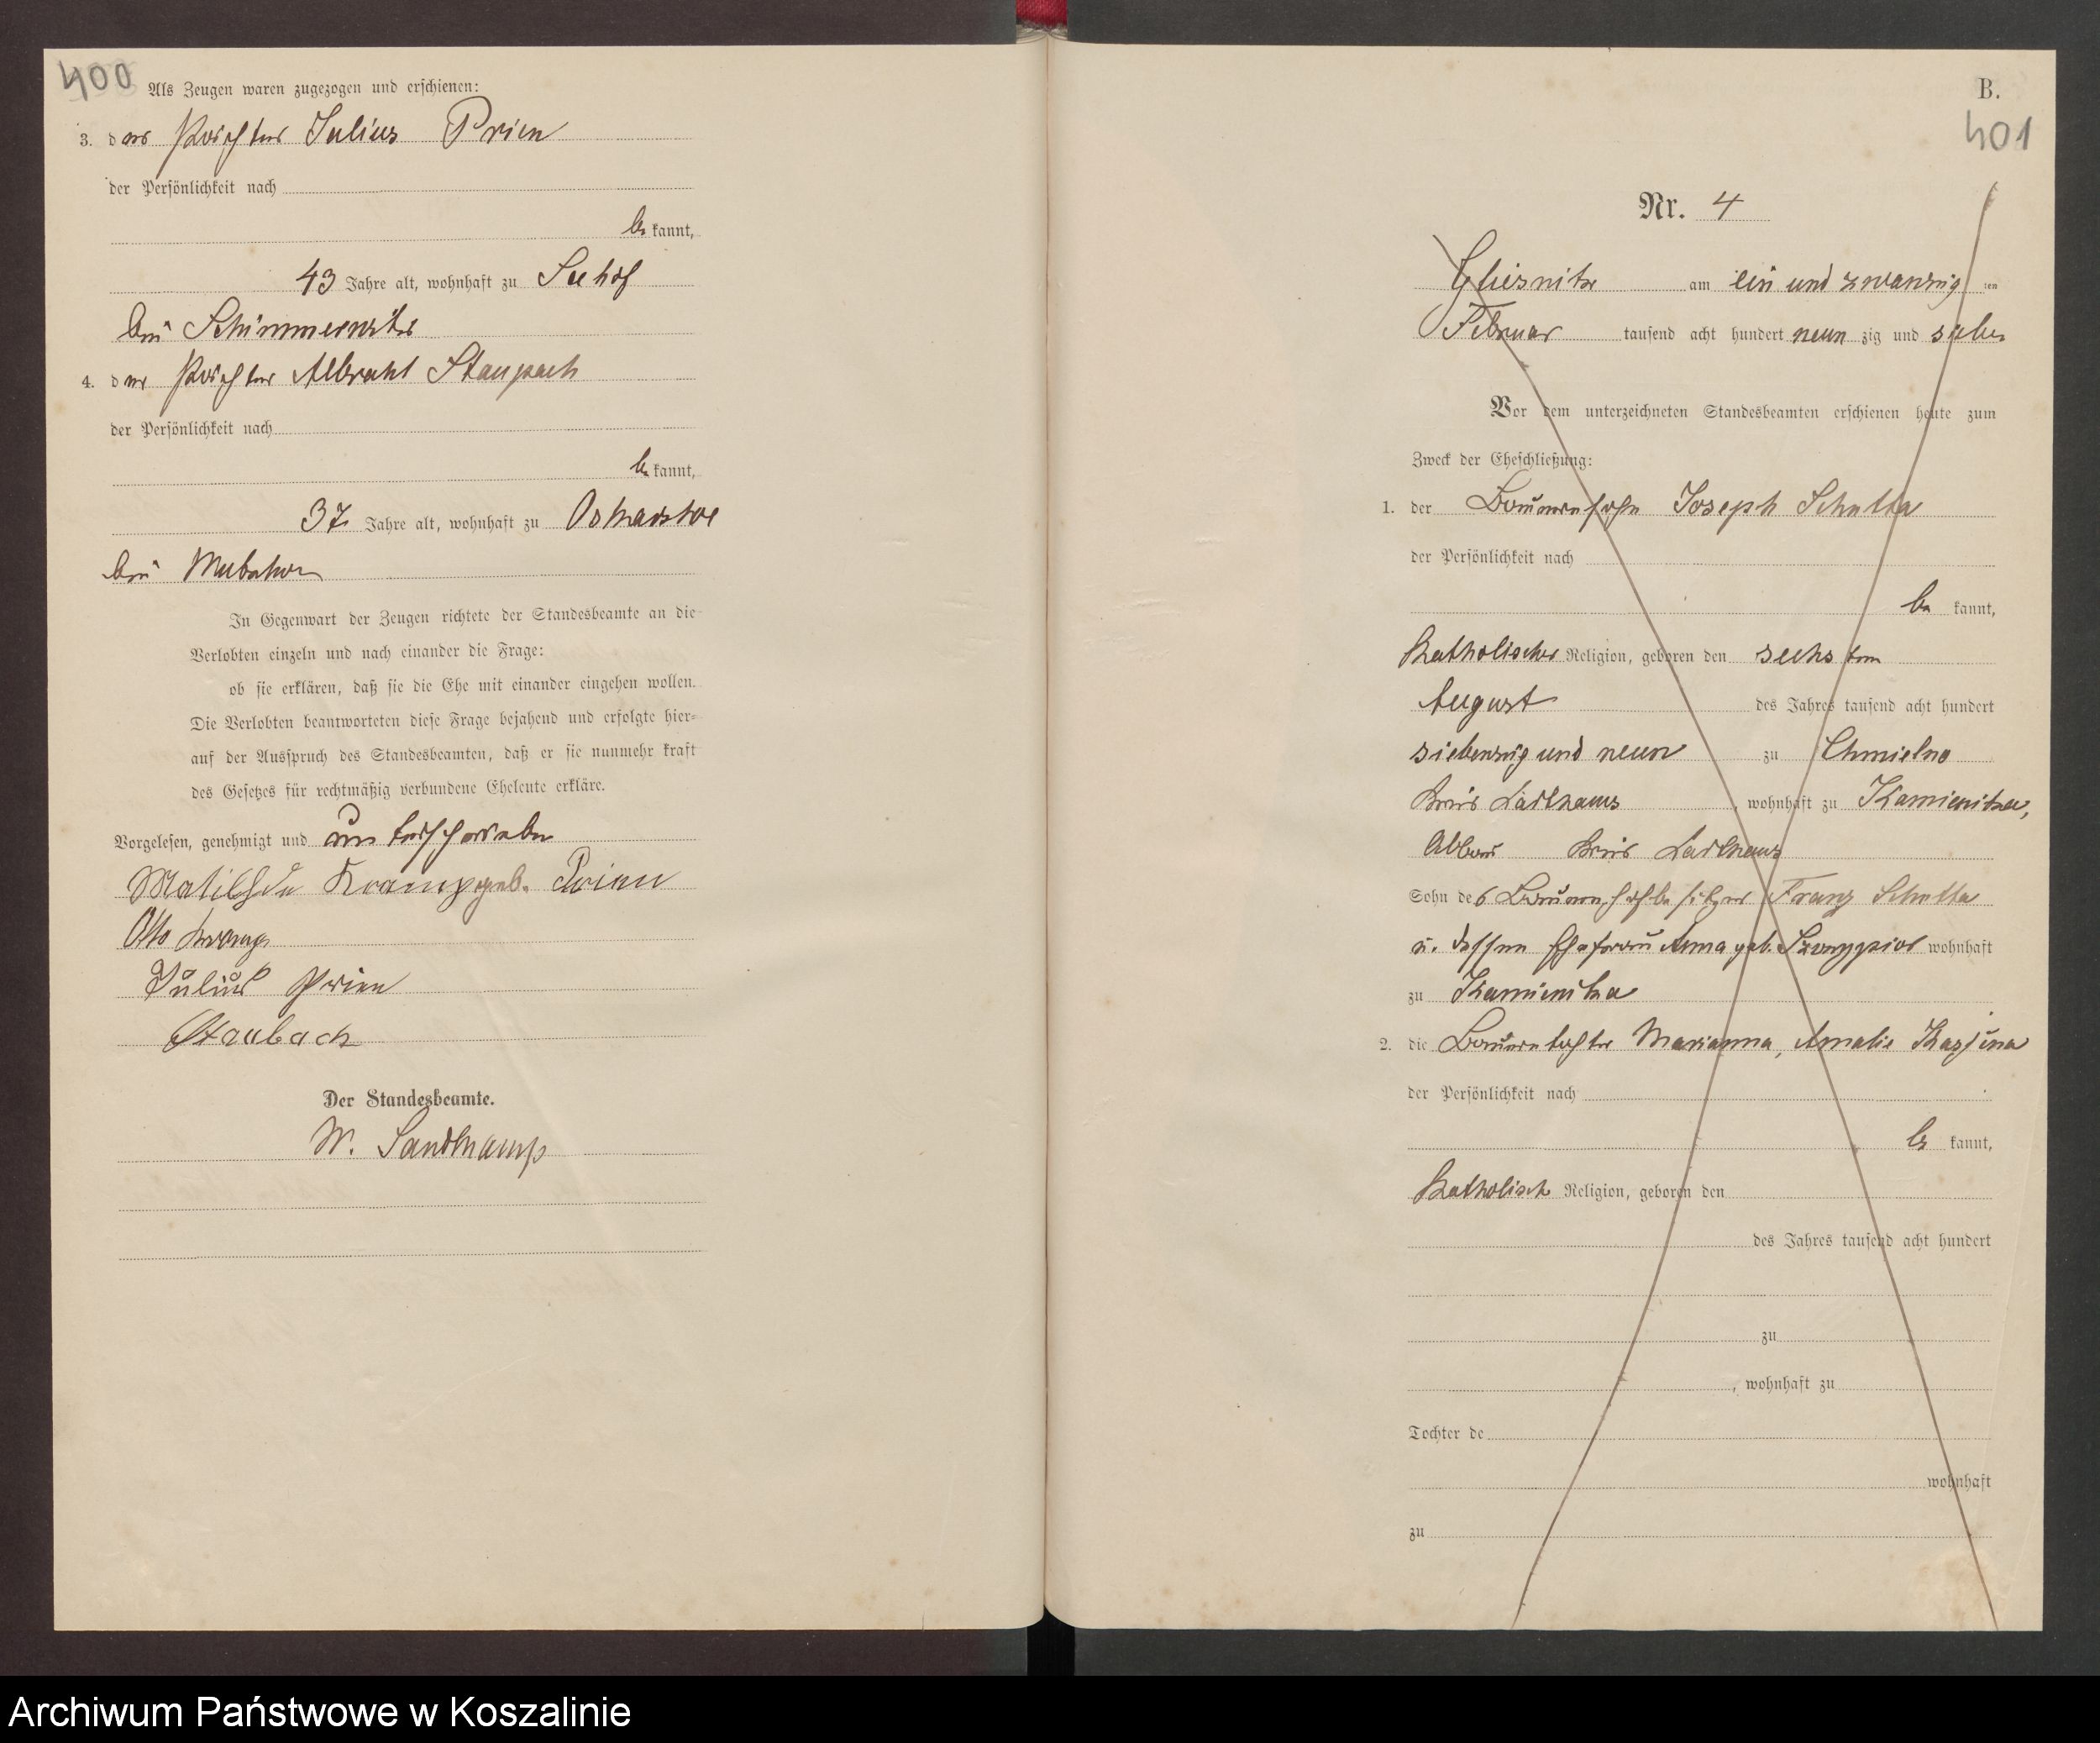 400
Als Zeugen waren zugezogen und erschienen:
3. der Pächter Julius Prien
der Persönlichkeit nach
be kannt,
43 Jahre alt, wohnhaft zu Seehof
bei Schimmerwitz
4. der Pächter Albrecht
der Persönlichkeit nach
be kannt,
37 Jahre alt, wohnhaft zu
bei
In Gegenwart der Zeugen richtete der Standesbeamte an die
Verlobten einzeln und nach einander die Frage:
ob sie erklären, daß sie die Ehe mit einander eingehen wollen.
Die Verlobten beantworteten diese Frage bejahend und erfolgte hier-
auf der Ausspruch des Standesbeamten, daß er sie nunmehr kraft
des Gesetzes für rechtmäßig verbundene Eheleute erkläre.
Vorgelesen, genehmigt und unterschrieben
Mathilde Kramp geb. Prien
Otto Kramp
Julius Prien
Staubach
Der Standesbeamte.
W. Sandkamp
B.
401
Nr. 4
Gliesnitz am ein und zwanzig ten
Februar tausend acht hundert neun zig und sieben
Vor dem unterzeichneten Standesbeamten erschienen heute zum
Zweck der Eheschließung:
1. der Bauernsohn Joseph Schutta
der Persönlichkeit nach
be kannt,
Katholischer Religion, geboren den sechsten
August des Jahres tausend acht hundert
siebenzig und neun zu Chmielno
Kreis Karthaus, wohnhaft zu Kamienitza,
Abbau Kreis Karthaus
Sohn des Bauernhofbesitzer Franz Schutta
u. dessen Ehefrau Anna geb. wohnhaft
zu Kamienitza
2. die Bauerntochter Marianna, Amalie
der Persönlichkeit nach
be kannt,
Katholisch Religion, geboren den
des Jahres tausend acht hundert
zu
, wohnhaft zu
Tochter de
wohnhaft
zu
Archiwum Państwowe w Koszalinie